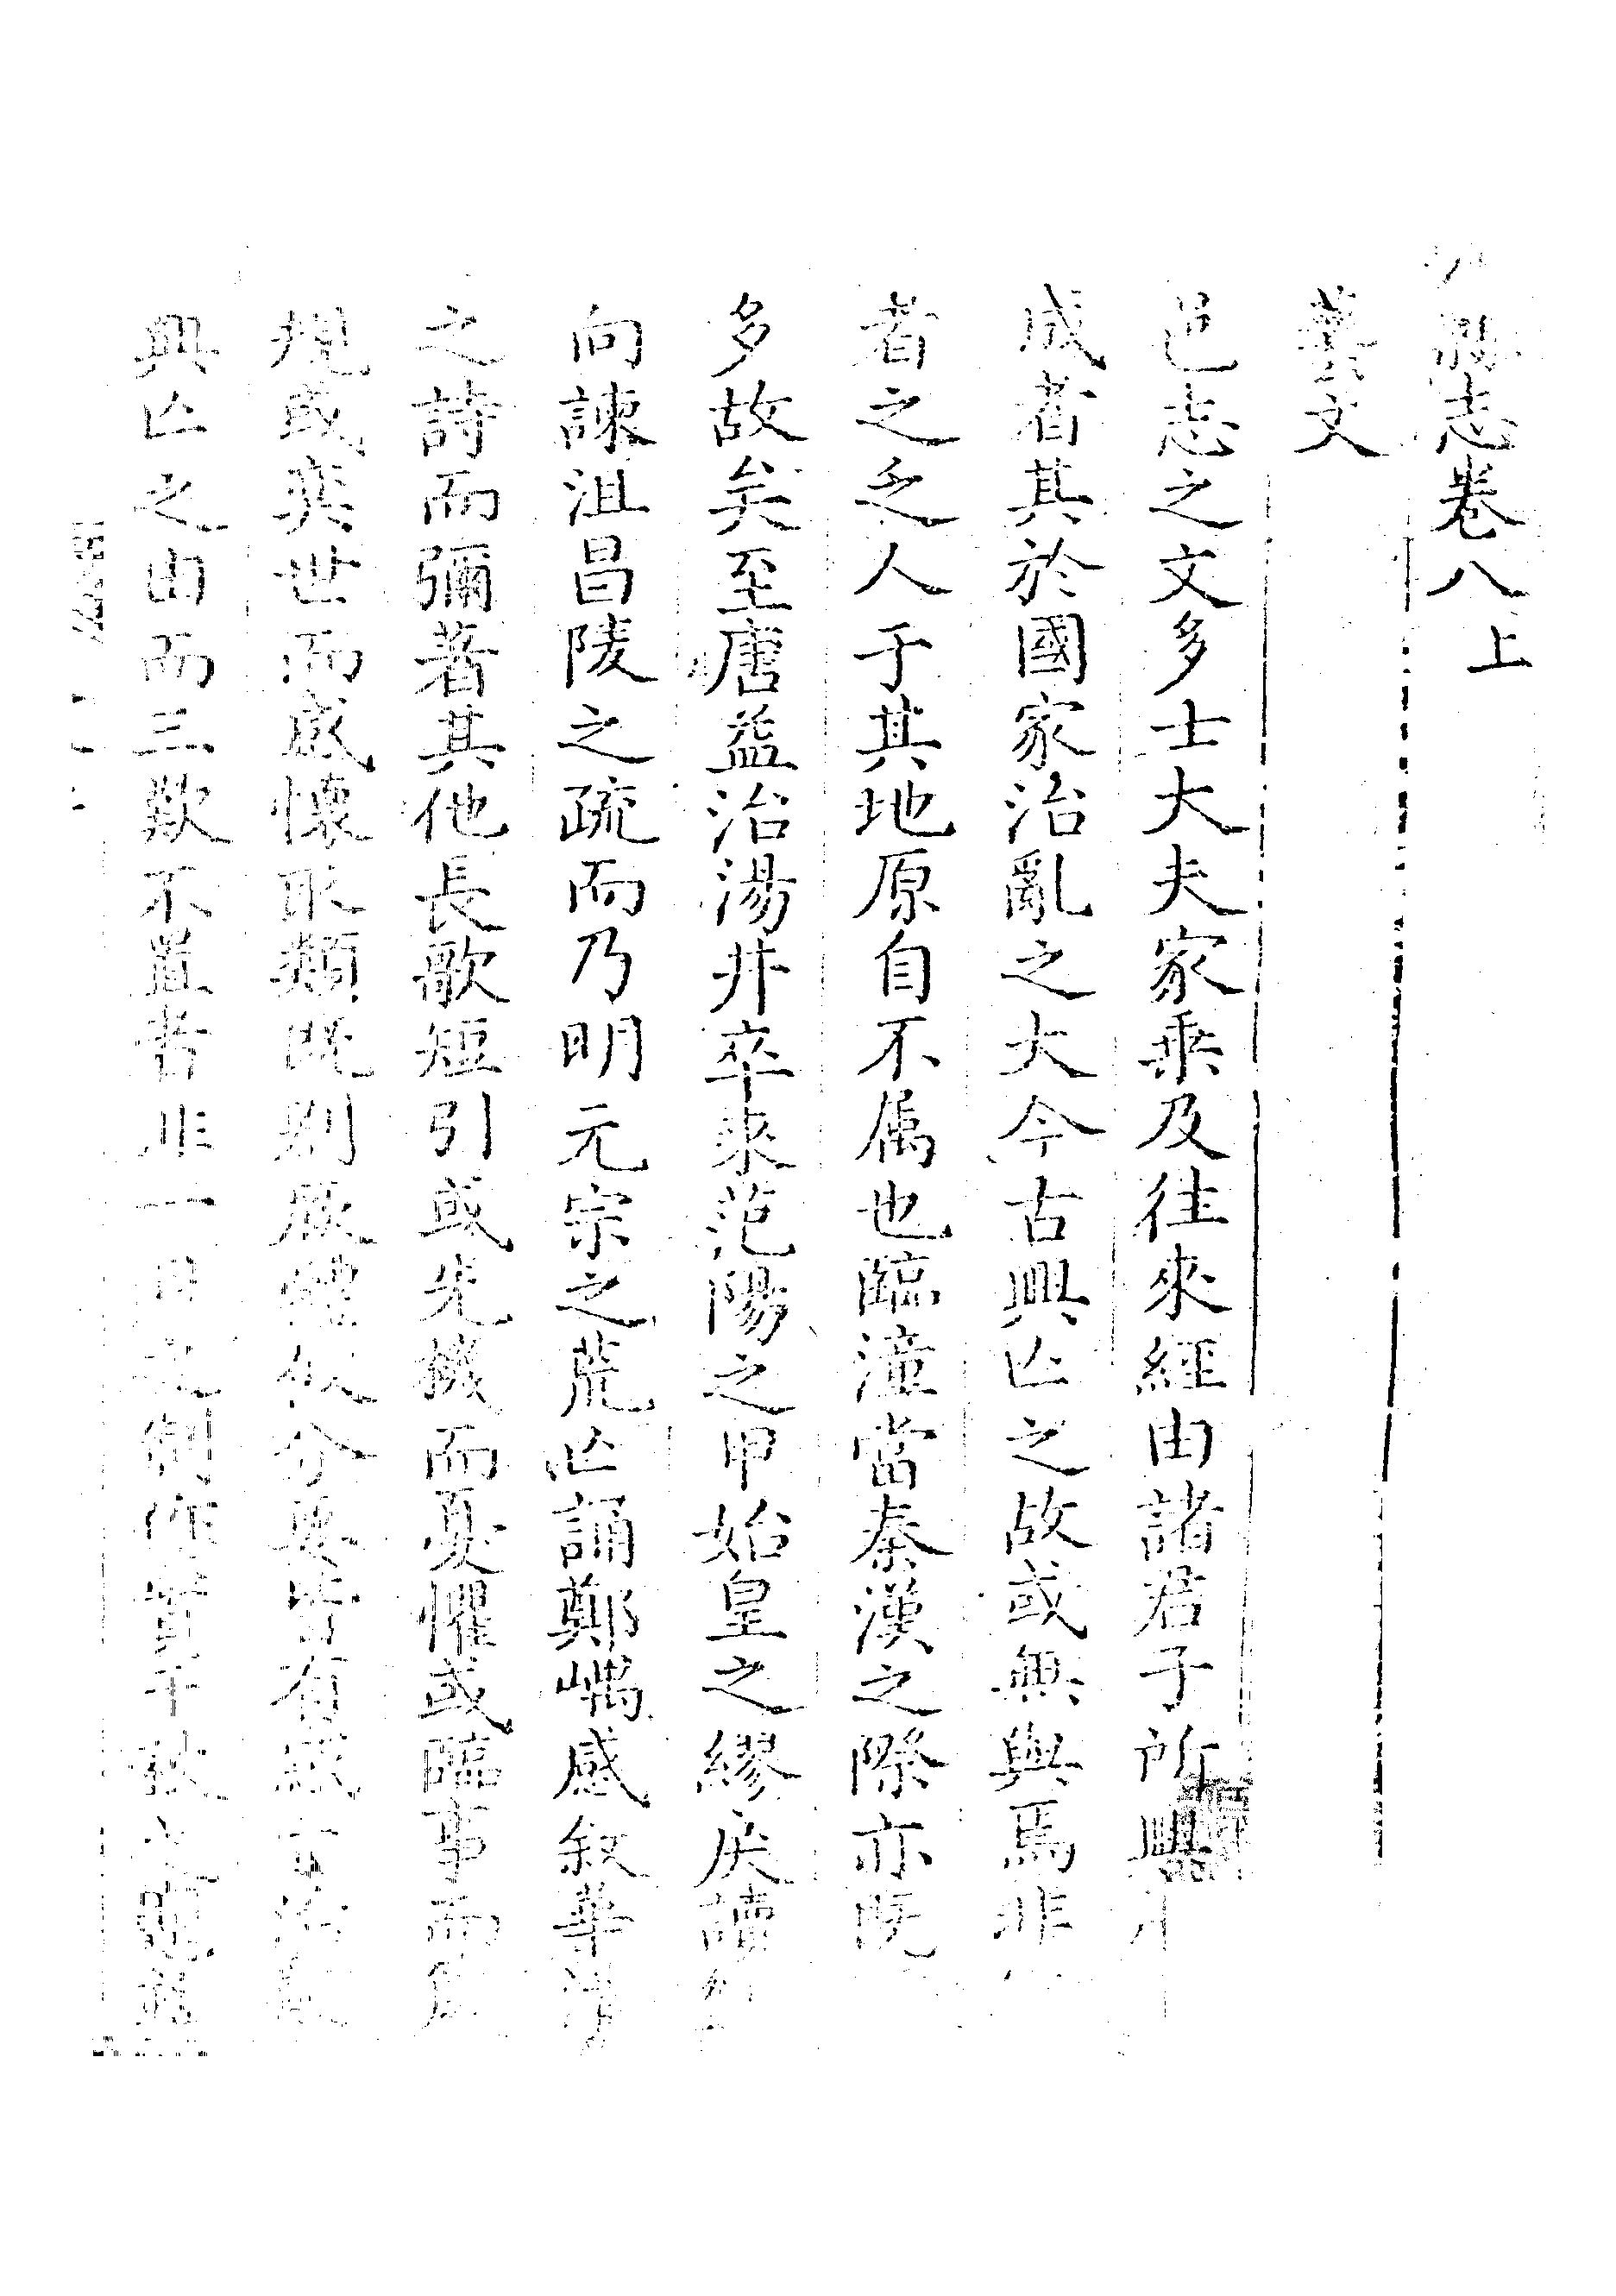 縣志卷八上
藝文
邑志之文多士大夫家乗及徃來經由諸君子所興
成者其於國家治亂之大今古興亡之故或無與焉非
者之乏人于其地原自不属也臨潼當秦漢之際亦既
多故矣至唐益治湯井卒來范陽之甲始皇之繆戾讀
向諫沮昌陵之疏而乃明元宗之荒亡誦鄭嵎感叙華清
之詩而彌著其他長歌短引或先機而憂懼或臨事而
規或奕世而感懷取類既别厥體攸分要皆有
興亡之由而三歎不置者非一